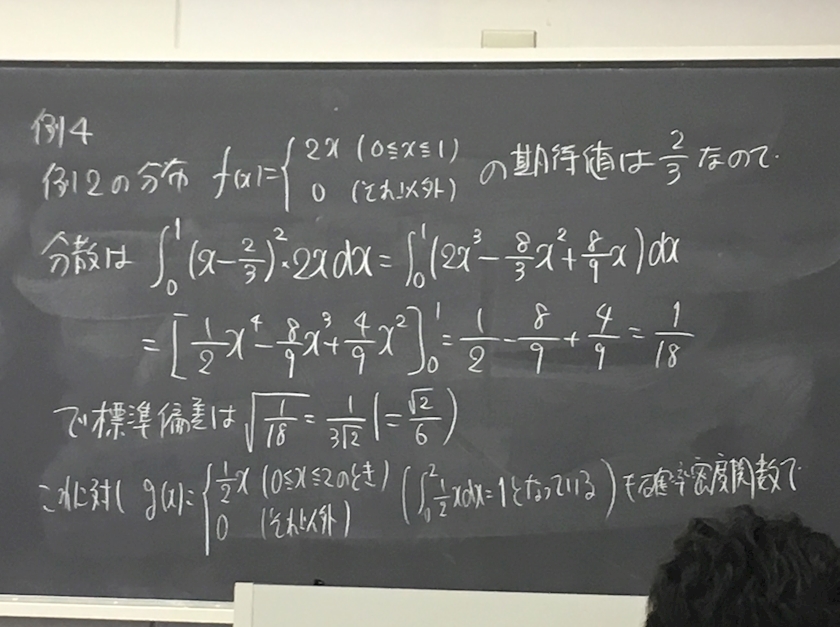 例4
例2の分布 f(x)={2x (0≦x≦1) 0 (それ以外) の期待値は 2/3 なので
分散は ∫₀¹(x-2/3)²・2xdx=∫₀¹(2x³-8/3x²+8/9x)dx
=[1/2x⁴-8/9x³+4/9x²]₀¹=1/2-8/9+4/9=1/18
で標準偏差は √(1/18)=1/(3√2)(=√2/6)
これに対し g(x)={1/2x (0≦x≦2のとき) 0 (それ以外) (∫₀²1/2xdx=1となっている)も確率密度関数で